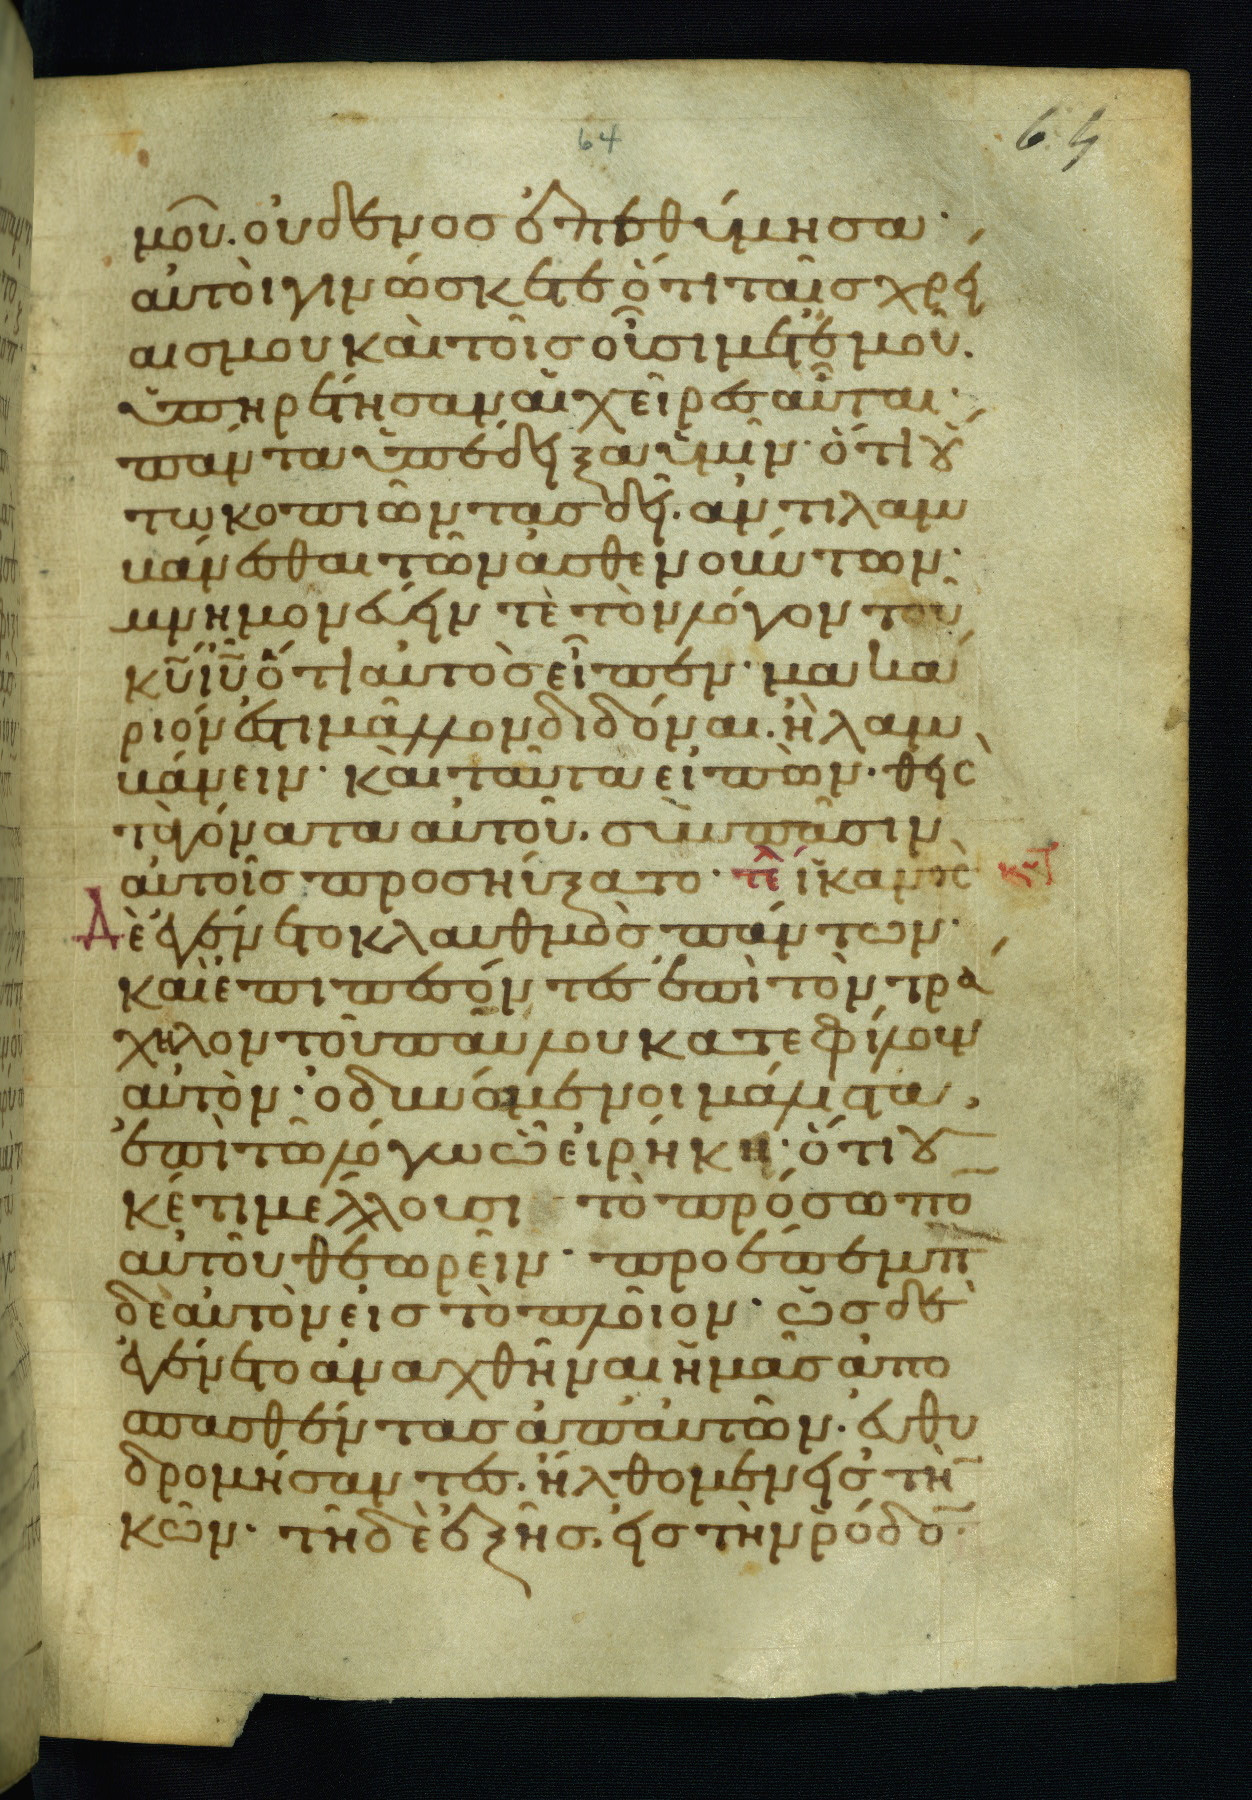 64
64
μου. οὐδενὸς ἐπεθύμησα·
αὐτοὶ γινώσκετε ὅτι ταῖς χρεί
αις μου καὶ τοῖς οὖσι μετ' ἐμοῦ.
ὑπηρέτησαν αἱ χεῖρες αὗται·
πάντα ὑπέδειξα ὑμῖν· ὅτι οὕ
τω κοπιῶντας δεῖ. ἀντιλαμ
βάνεσθαι τῶν ἀσθενούντων·
μνημονεύειν τὲ τὸν λόγον τοῦ
κ̅υ̅ ἰ̅υ̅ ὅτι αὐτὸς εἶπεν· μακά
ριόν ἐστι μᾶλλον διδόναι. ἢ λαμ
βάνειν· καὶ ταῦτα εἰπὼν. θεὶς
τὰ γόνατα αὐτοῦ. σὺν πᾶσιν
αὐτοῖς προσηύξατο· τε ἱκανὸς
δὲ ἐγένετο κλαυθμὸς πάντων·
καὶ ἐπιπεσόντες ἐπὶ τὸν τρά
χηλον τοῦ παύλου κατεφίλουν
αὐτὸν· ὀδυνώμενοι μάλιστα,
ἐπὶ τῶ λόγω ὧ εἰρήκει· ὅτι οὐ
κέτι μέλλουσι τὸ πρόσωπο̅
αὐτοῦ θεωρεῖν· προέπεμπ
δὲ αὐτὸν εἰς τὸ πλοῖον· ὡς δὲ
ἐγένετο ἀναχθῆναι ἡμᾶς ἀπο
σπασθέντας ἀπ' αὐτῶν. εὐθυ
δρομήσαντες. ἤλθομεν εἰς τὴ̅
κῶν· τῆ δὲ ἑξῆς. εἰς τὴν ῥόδο̅·